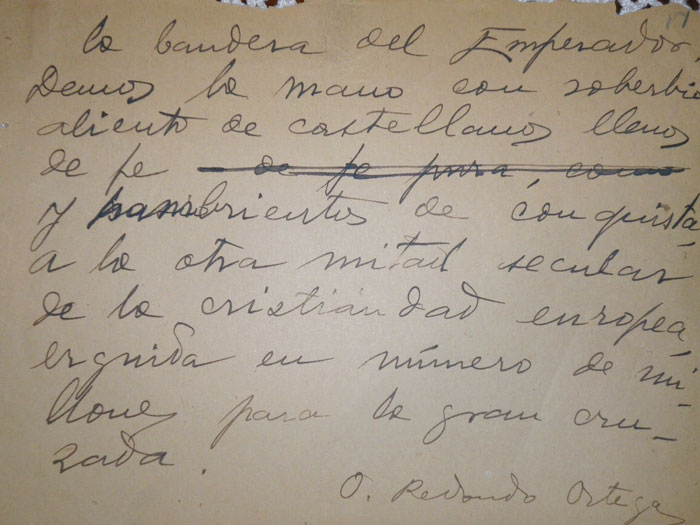 la bandera del Emperador.
Demos la mano con soberbio
aliento de castellanos llenos
de fe de fe pura, como
y hambrientos de conquista,
a la otra mitad secular
de la cristiandad europea,
erguida en número de mi-
llones para la gran cru-
zada.
O. Redondo Ortega